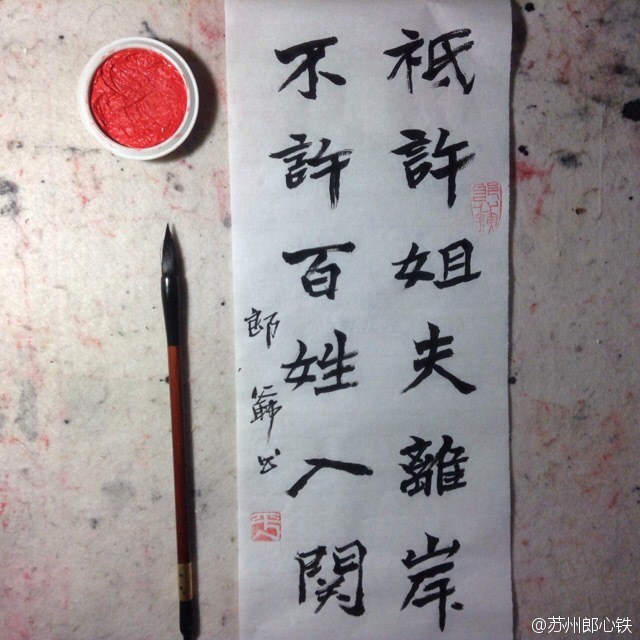 祗許姐夫離岸
不許百姓入関
郎
@苏州郎心铁